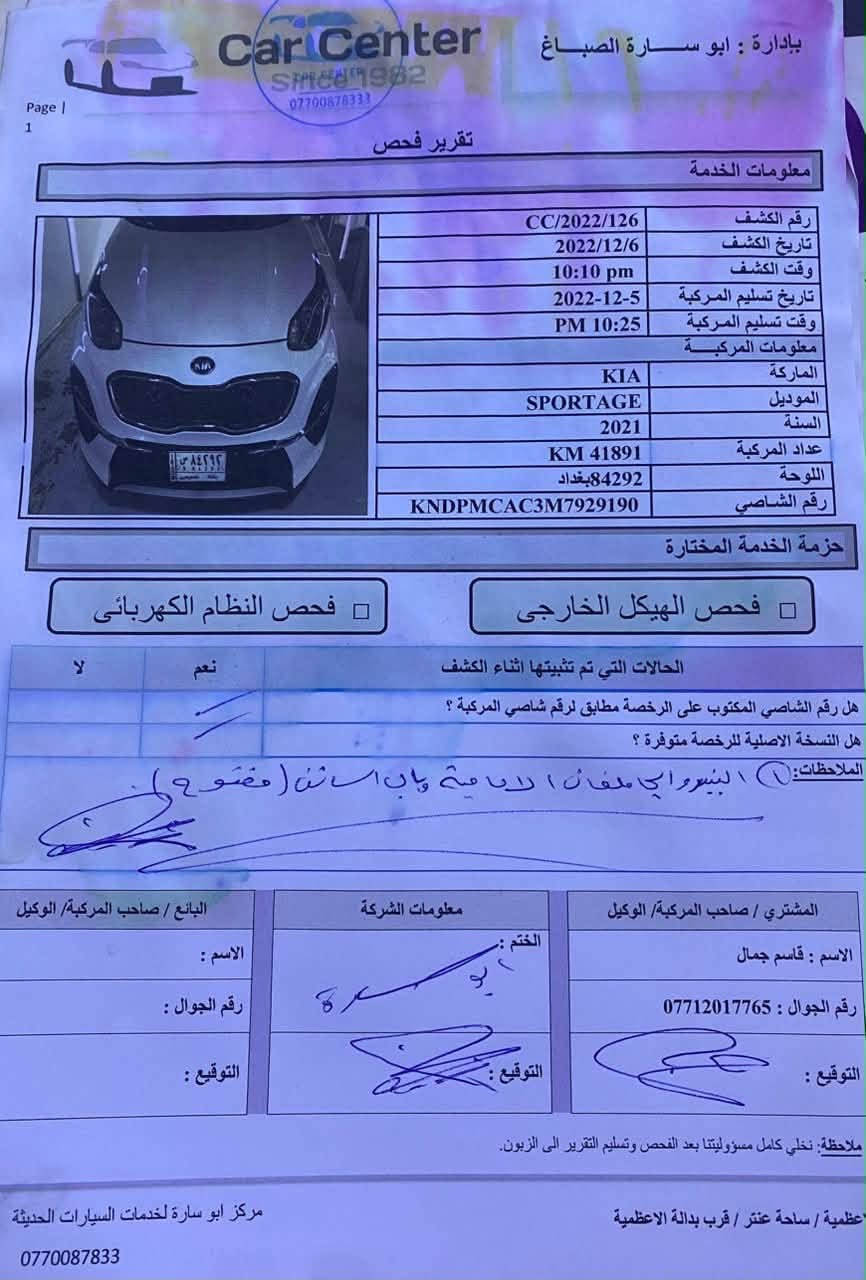 بإدارة : ابو ســـارة الصبـــاغ
Car Center
CAR CENTER
Since 1982
07700878333
Page |
1
تقرير فحص
معلومات الخدمة
رقم الكشف CC/2022/126
تاريخ الكشف 2022/12/6
وقت الكشف 10:10 pm
تاريخ تسليم المركبة 2022-12-5
وقت تسليم المركبة PM 10:25
معلومات المركبـــة
الماركة KIA
الموديل SPORTAGE
السنة 2021
عداد المركبة KM 41891
اللوحة 84292بغداد
رقم الشاصي KNDPMCAC3M7929190
KIA
٨٤٢٩٢
حزمة الخدمة المختارة
□ فحص الهيكل الخارجي
□ فحص النظام الكهربائي
الحالات التي تم تثبيتها اثناء الكشف نعم لا
هل رقم الشاصي المكتوب على الرخصة مطابق لرقم شاصي المركبة ؟
هل النسخة الاصلية للرخصة متوفرة ؟
الملاحظات: ١) البنيد والجاملغان الامامية وباب اساشن (مفتوح).
المشتري / صاحب المركبة/ الوكيل
الاسم : قاسم جمال
رقم الجوال : 07712017765
التوقيع :
معلومات الشركة
الختم :
ابو سارة
التوقيع :
البائع / صاحب المركبة/ الوكيل
الاسم :
رقم الجوال :
التوقيع :
ملاحظة: نخلي كامل مسؤوليتنا بعد الفحص وتسليم التقرير الى الزبون.
عظمية / ساحة عنتر / قرب بدالة الاعظمية
مركز ابو سارة لخدمات السيارات الحديثة
0770087833